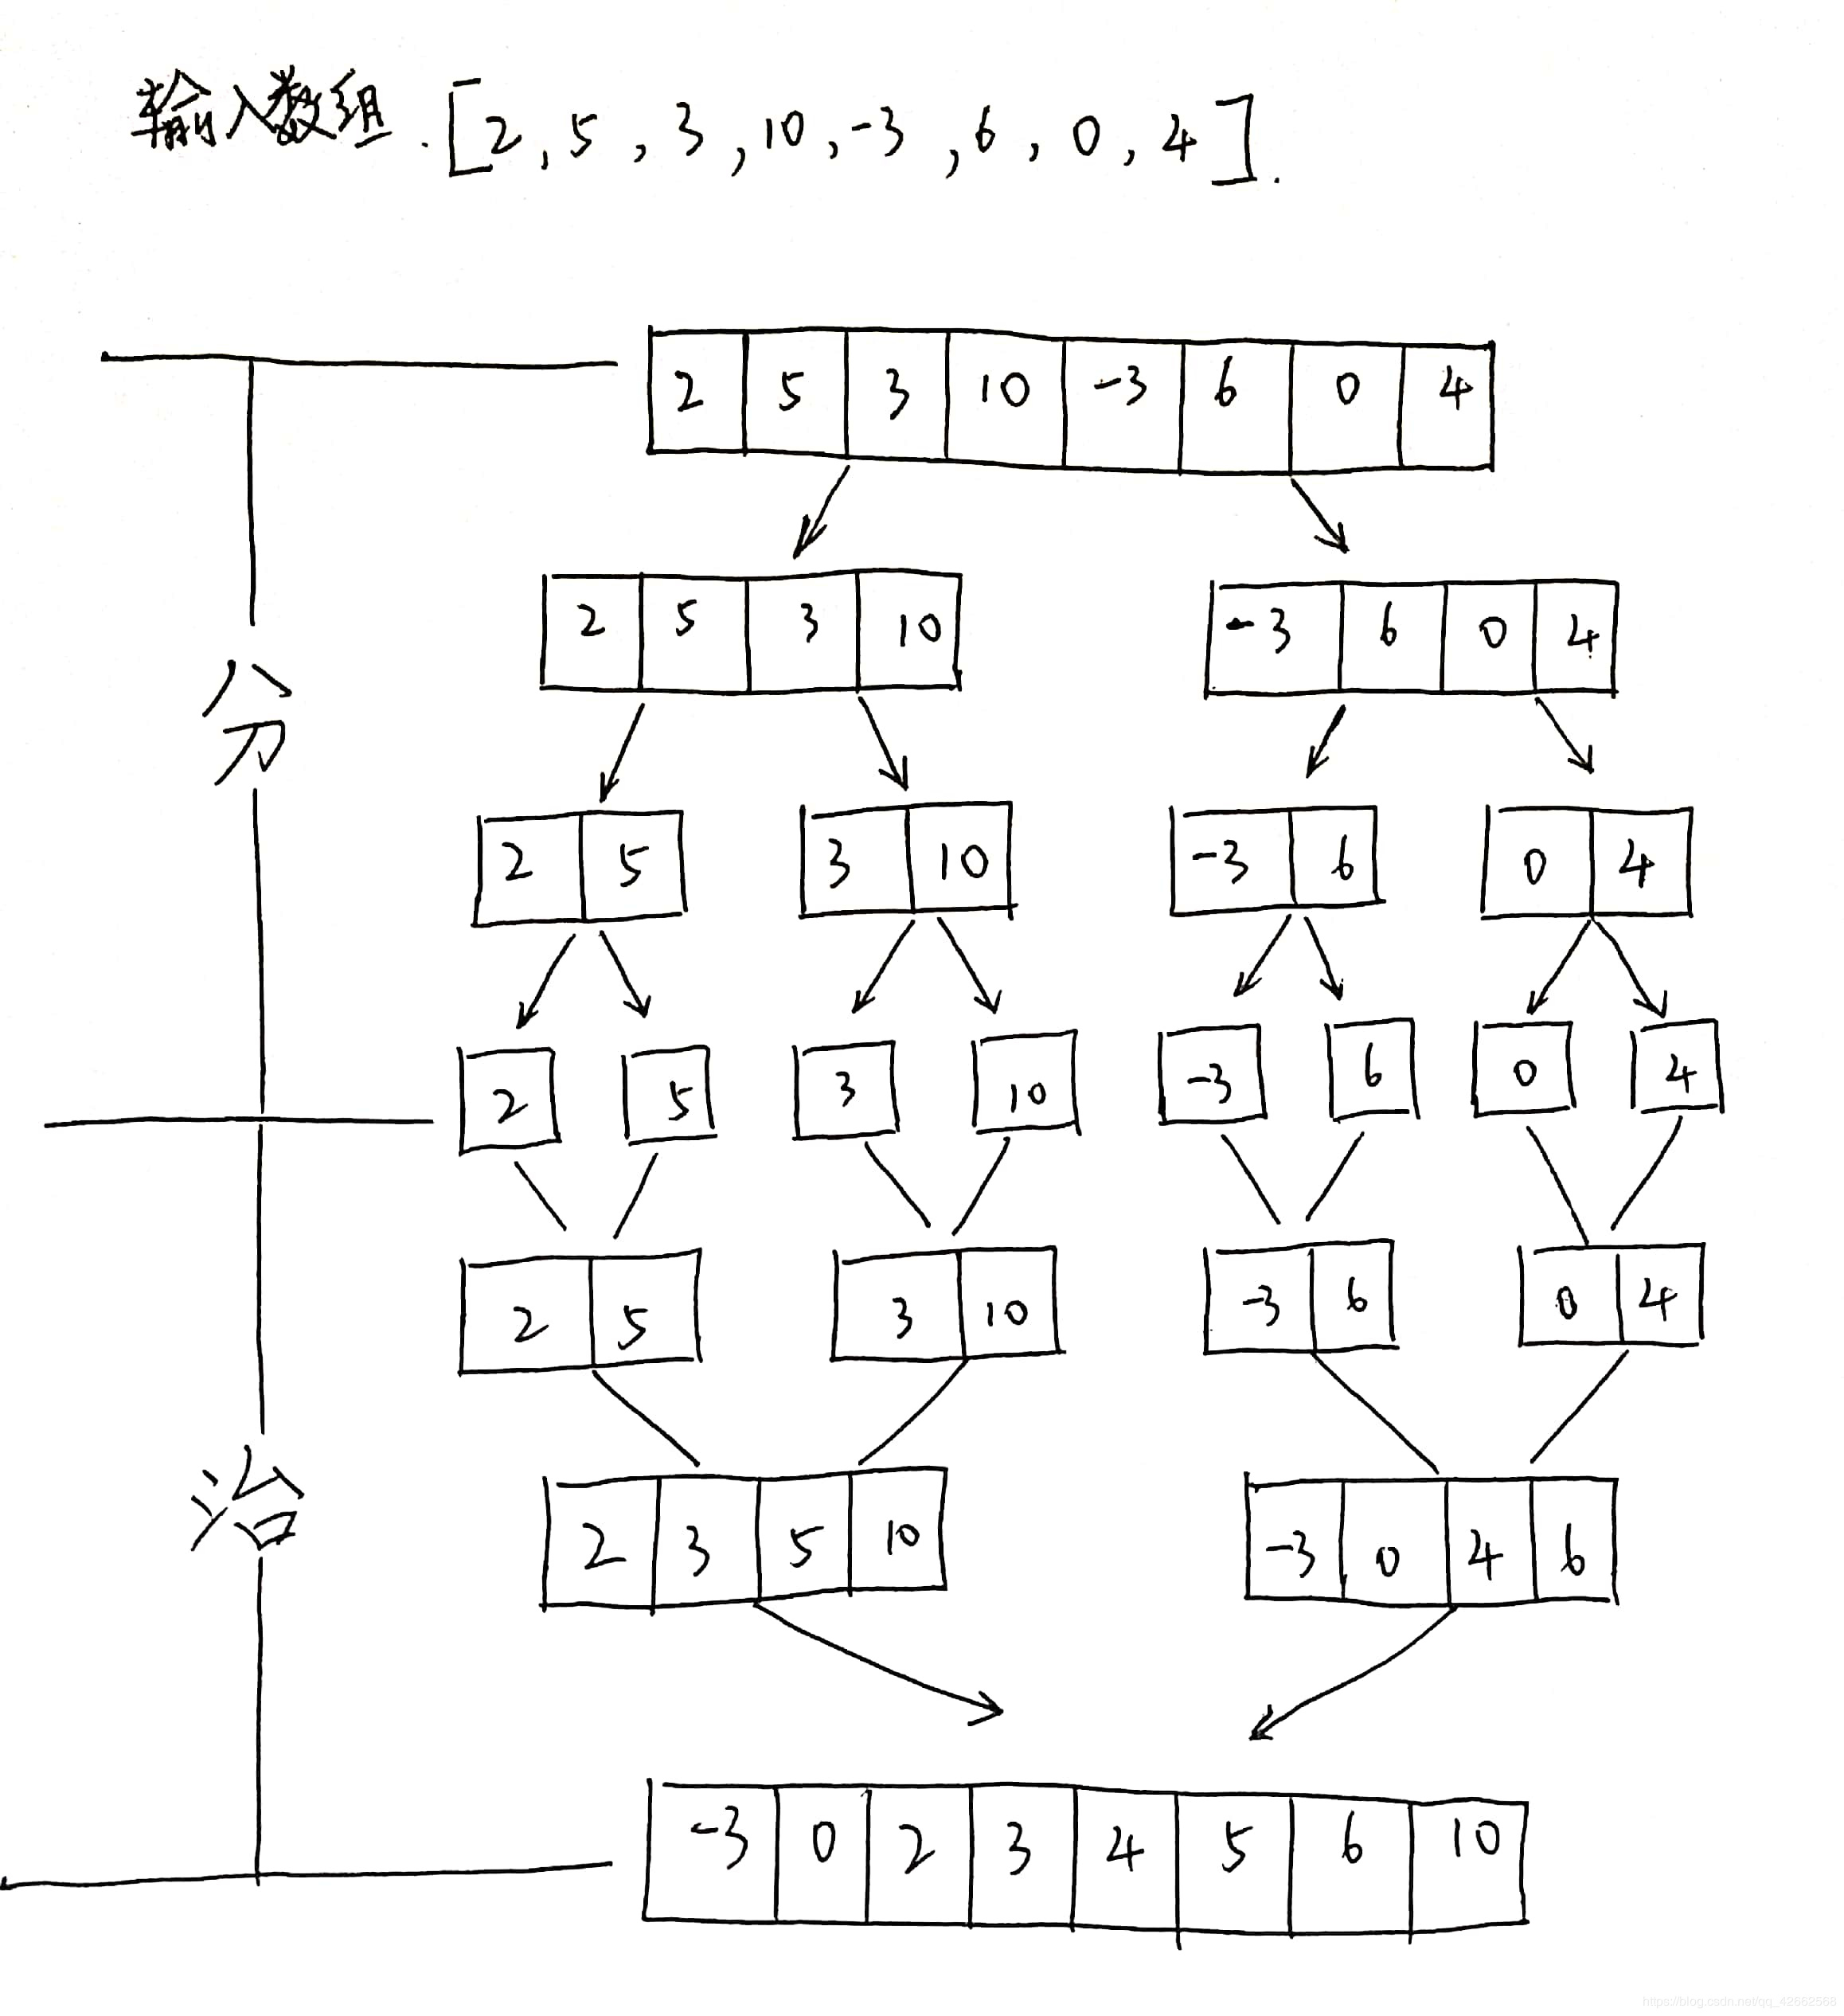 输入数组.[2,5,3,10,-3,6,0,4].
2 5 3 10 -3 6 0 4
2 5 3 10 -3 6 0 4
分
2 5 3 10 -3 6 0 4
2 5 3 10 -3 6 0 4
2 5 3 10 -3 6 0 4
治
2 3 5 10 -3 0 4 6
-3 0 2 3 4 5 6 10
https://blog.csdn.net/qq_42662568